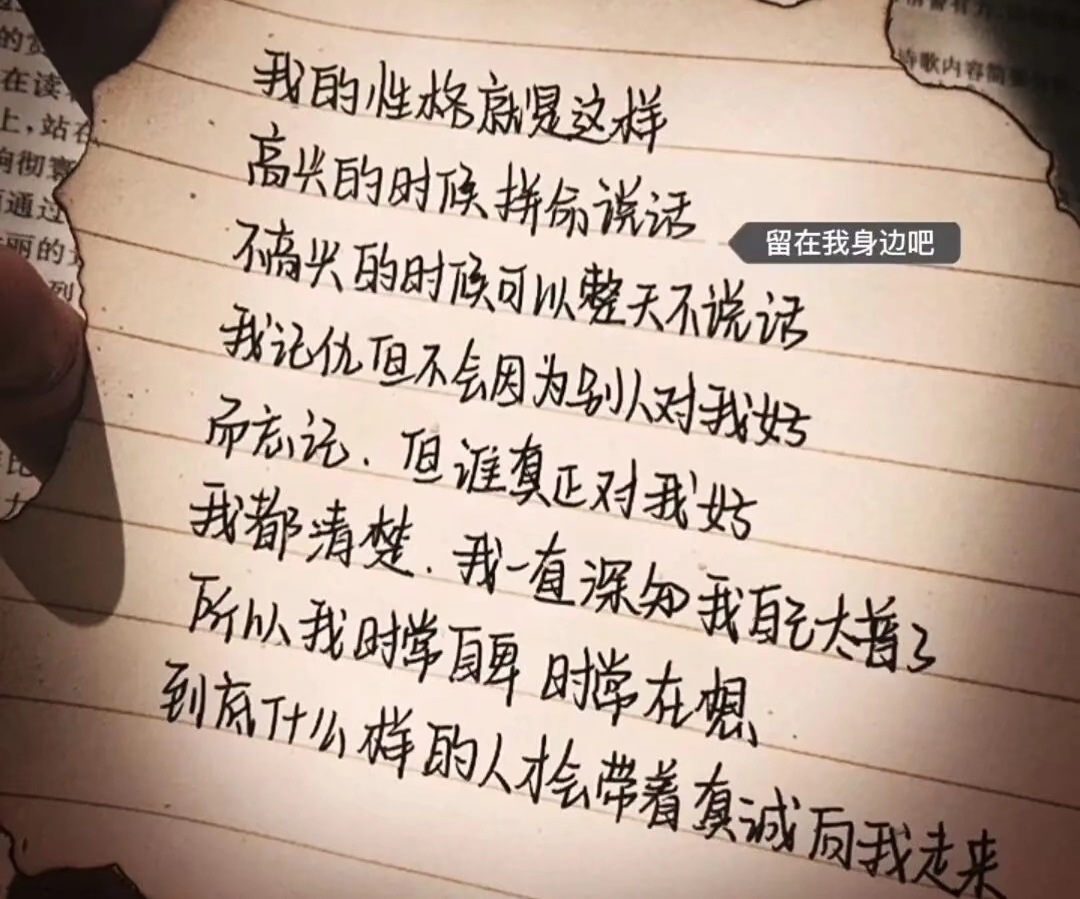 我的性格就是这样
高兴的时候拼命说话
留在我身边吧
不高兴的时候可以整天不说话
我记仇但不会因为别人对我好
而忘记.但谁真正对我好
我都清楚.我一直深知我自己太普了
所以我时常自卑 时常在想
到底什么样的人才会带着真诚向我走来
在读
上,站在
响彻寰
通过
丽的
列
诗歌内容简